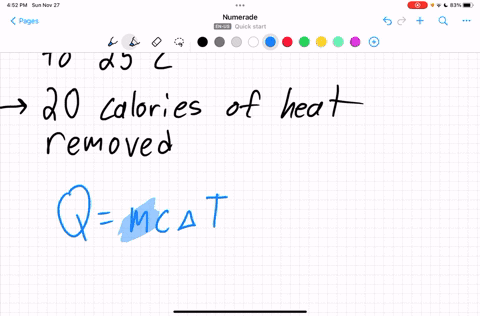 4:52 PM Sun Nov 27
83%
Numerade
Pages
EN-US Quick start
to 25 C
→ 20 calories of heat
removed
Q = mc Δ T